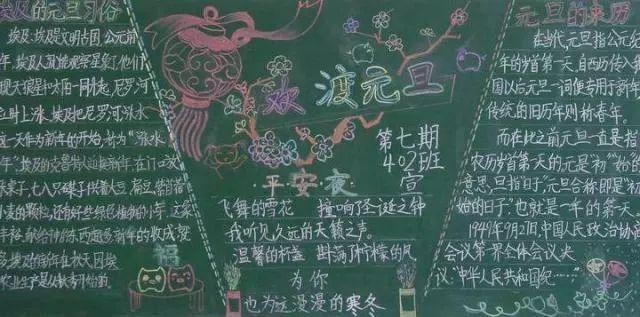 埃及的元旦习俗
埃及:埃及是文明古国,公元前
年,埃及人就能观察星象,他们
现天狼星和太阳一同升起,尼罗河
立时上涨,埃及把尼罗河水
这一天作为新年的开始,称为“涨水
年”
小麦的颗粒,还有好些绿色植物的小芽,
在新年
福
欢渡元旦
第七期
402班
宣
·平安夜·
飞舞的雪花 撞响圣诞之钟
我听见久远的天籁之声
温馨的杯盏 斟满了柠檬的风
为你
也为这漫漫的寒冬
元旦的来历
在当代,元旦指公元纪
年的岁首第一天,自西历传入我
国以后,元旦一词便专用于新年
传统的旧历年则称春年。
而在此之前元旦一直是指
农历岁首第一天的元是初“始的
意思,旦指日子,元旦合称即是“初
始的日子”,也就是一年的第一天
1949年9月27日中国人民政治协商
会议第一界全体会议决
议:“中华人民共和国纪……”